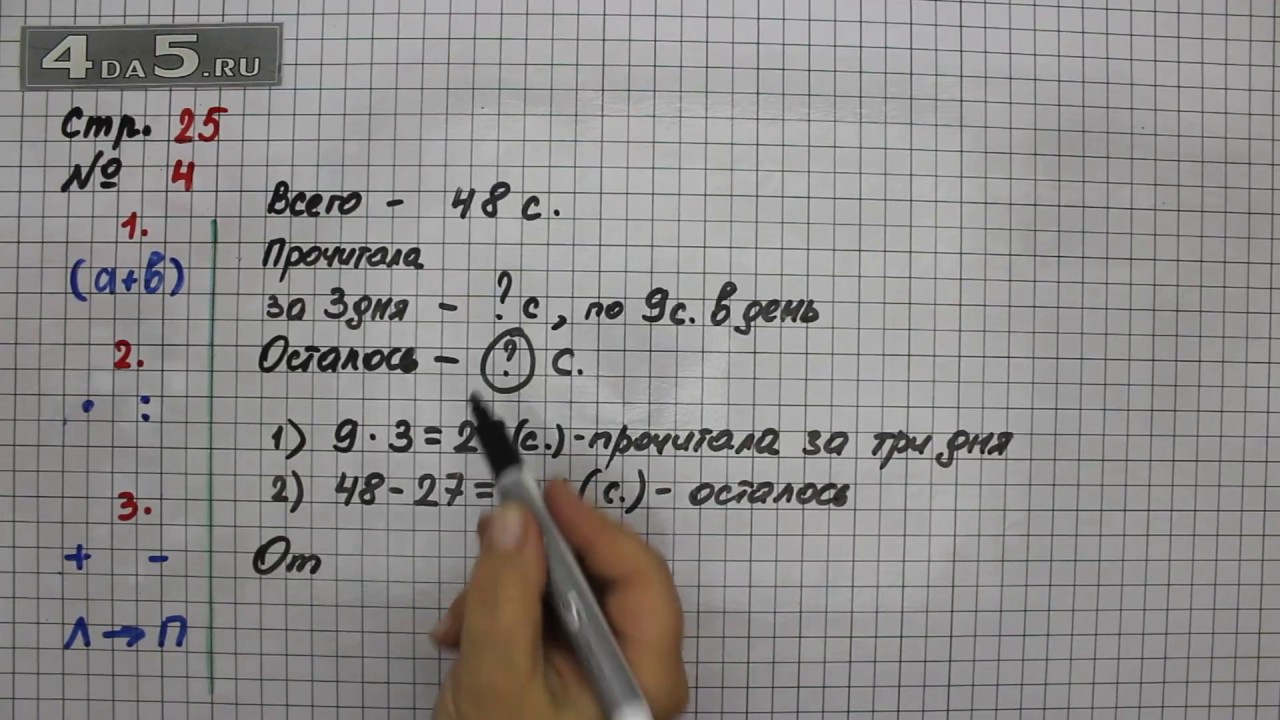 4DA5.RU
Стр. 25
№ 4
1.
(a+b)
2.
• :
3.
+ -
Л → П
Всего - 48 с.
Прочитала
за 3 дня - ? с, по 9с. в день
Осталось - ? с.
1) 9 · 3 = 2 (с.) - прочитала за три дня
2) 48 - 27 = (с.) - осталось
От